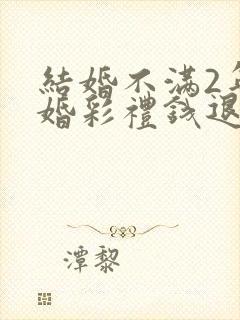 結婚不滿2年
婚彩禮錢退
潭黎